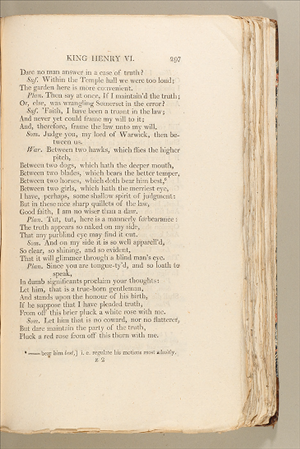 KING HENRY VI. 297
Dare no man answer in a case of truth?
Suf. Within the Temple hall we were too loud;
The garden here is more convenient.
Plan. Then say at once, If I maintain'd the truth;
Or, else, was wrangling Somerset in the error?
Suf. 'Faith, I have been a truant in the law;
And never yet could frame my will to it;
And, therefore, frame the law unto my will.
Som. Judge you, my lord of Warwick, then be-
tween us.
War. Between two hawks, which flies the higher
pitch,
Between two dogs, which hath the deeper mouth,
Between two blades, which bears the better temper,
Between two horses, which doth bear him best,*
Between two girls, which hath the merriest eye,
I have, perhaps, some shallow spirit of judgment:
But in these nice sharp quillets of the law,
Good faith, I am no wiser than a daw.
Plan. Tut, tut, here is a mannerly forbearance:
The truth appears so naked on my side,
That any purblind eye may find it out.
Som. And on my side it is so well apparell'd,
So clear, so shining, and so evident,
That it will glimmer through a blind man's eye.
Plan. Since you are tongue-ty'd, and so loath to
speak,
In dumb significants proclaim your thoughts:
Let him, that is a true-born gentleman,
And stands upon the honour of his birth,
If he suppose that I have pleaded truth,
From off this brier pluck a white rose with me.
Som. Let him that is no coward, nor no flatterer,
But dare maintain the party of the truth,
Pluck a red rose from off this thorn with me.
* —— bear him best,] i. e. regulate his motions most adroitly.